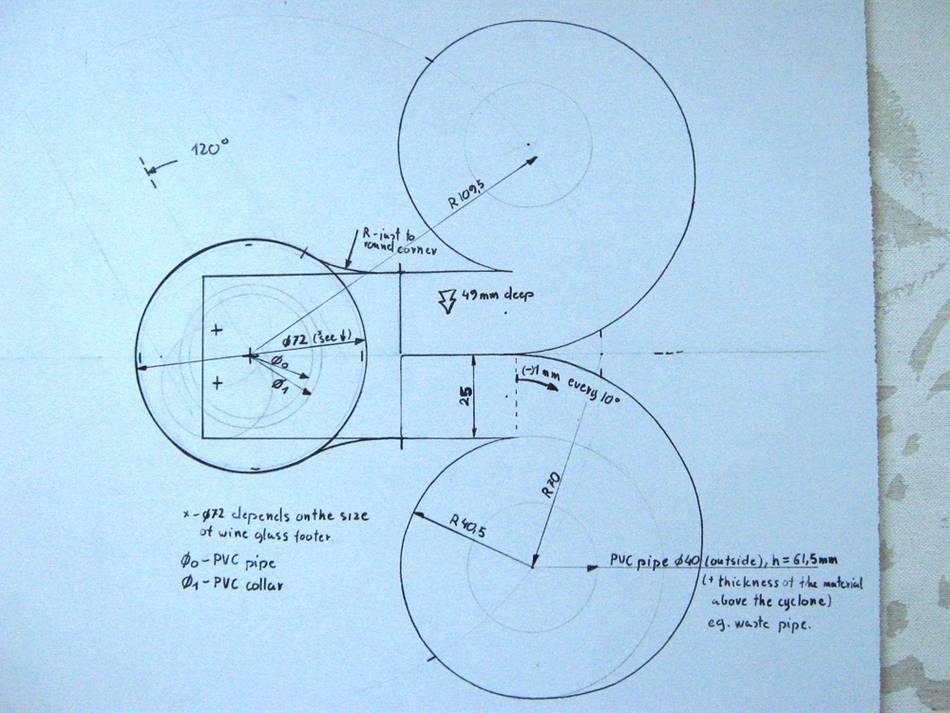 120°
R 109,5
R-just to
round corner
49 mm deep
ø72 (*see ↓)
ø0
ø1
25
(-)1 mm every 10°
R70
R 40,5
x - ø72 depends on the size
of wine glass footer.
ø0 - PVC pipe
ø1 - PVC collar
PVC pipe ø40 (outside), h = 61,5mm
(+ thickness of the material
above the cyclone)
eg. waste pipe.